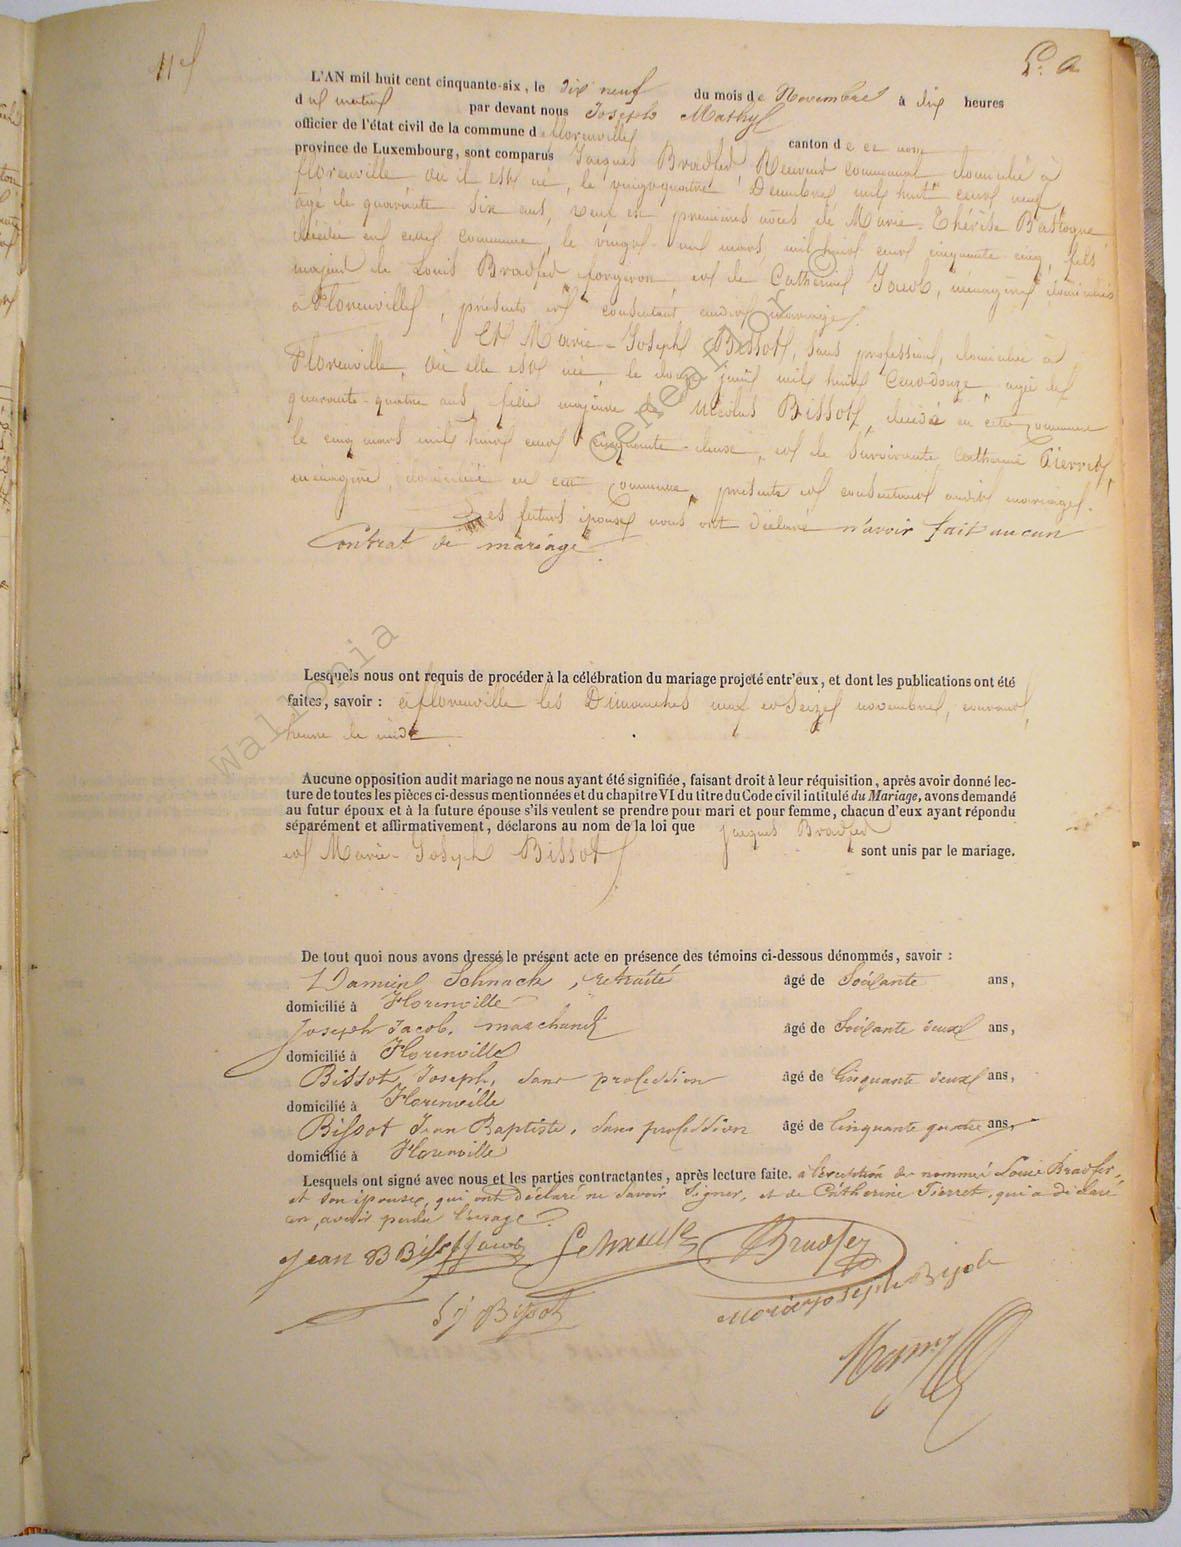 11e
Lo. a
L'AN mil huit cent cinquante-six, le dix neuf du mois de Novembre à dix heures
du matin par devant nous Joseph Mathy
officier de l'état civil de la commune de florenville canton de ce nom
province de Luxembourg, sont comparus Jacques Bradfer Receveur communal domicilié à
florenville où il est né, le vingt quatre Décembre mil huit cent neuf,
âgé de quarante six ans, veuf en premières noces de Marie-Thérèse Bastogne
décédée en cette commune, le vingt-un mars mil huit cent cinquante cinq, fils
majeur de Louis Bradfer forgeron, et de Catherine Jacob, ménagère domiciliés
à Florenville, présents et consentant audit mariage.
Et Marie-Joseph Bissot, sans profession, domiciliée à
Florenville, où elle est née, le douze juin mil huit cent douze, âgée de
quarante-quatre ans, fille majeure de Nicolas Bissot, décédé en cette commune
le cinq mars mil huit cent cinquante-deux, et de survivante Catherine Pierret,
ménagère, domiciliée en cette commune, présente et consentant audit mariage.
Les futurs époux nous ont déclaré n'avoir fait aucun
Contrat de mariage.
Lesquels nous ont requis de procéder à la célébration du mariage projeté entr'eux, et dont les publications ont été
faites, savoir : à florenville les Dimanches neuf et seize novembre, courant,
heure de midi
Aucune opposition audit mariage ne nous ayant été signifiée, faisant droit à leur réquisition, après avoir donné lec-
ture de toutes les pièces ci-dessus mentionnées et du chapitre VI du titre du Code civil intitulé du Mariage, avons demandé
au futur époux et à la future épouse s'ils veulent se prendre pour mari et pour femme, chacun d'eux ayant répondu
séparément et affirmativement, déclarons au nom de la loi que Jacques Bradfer
et Marie-Joseph Bissot sont unis par le mariage.
De tout quoi nous avons dressé le présent acte en présence des témoins ci-dessous dénommés, savoir :
Damien Schnack, retraité âgé de Soixante ans,
domicilié à Florenville
Joseph Jacob, marchand âgé de Soixante deux ans,
domicilié à Florenville
Bissot, Joseph, sans profession âgé de Cinquante deux ans,
domicilié à Florenville
Bissot Jean Baptiste, sans profession âgé de Cinquante quatre ans,
domicilié à Florenville
Lesquels ont signé avec nous et les parties contractantes, après lecture faite. à l'exception de nommé Louis Bradfer,
et son épouse, qui ont déclaré ne savoir signer, et de Catherine Pierret, qui a déclaré
en avoir perdu l'usage.
Jean B Bissot Jacob Bradfer
Bissot Marie joseph
Wallonia Genealor ©